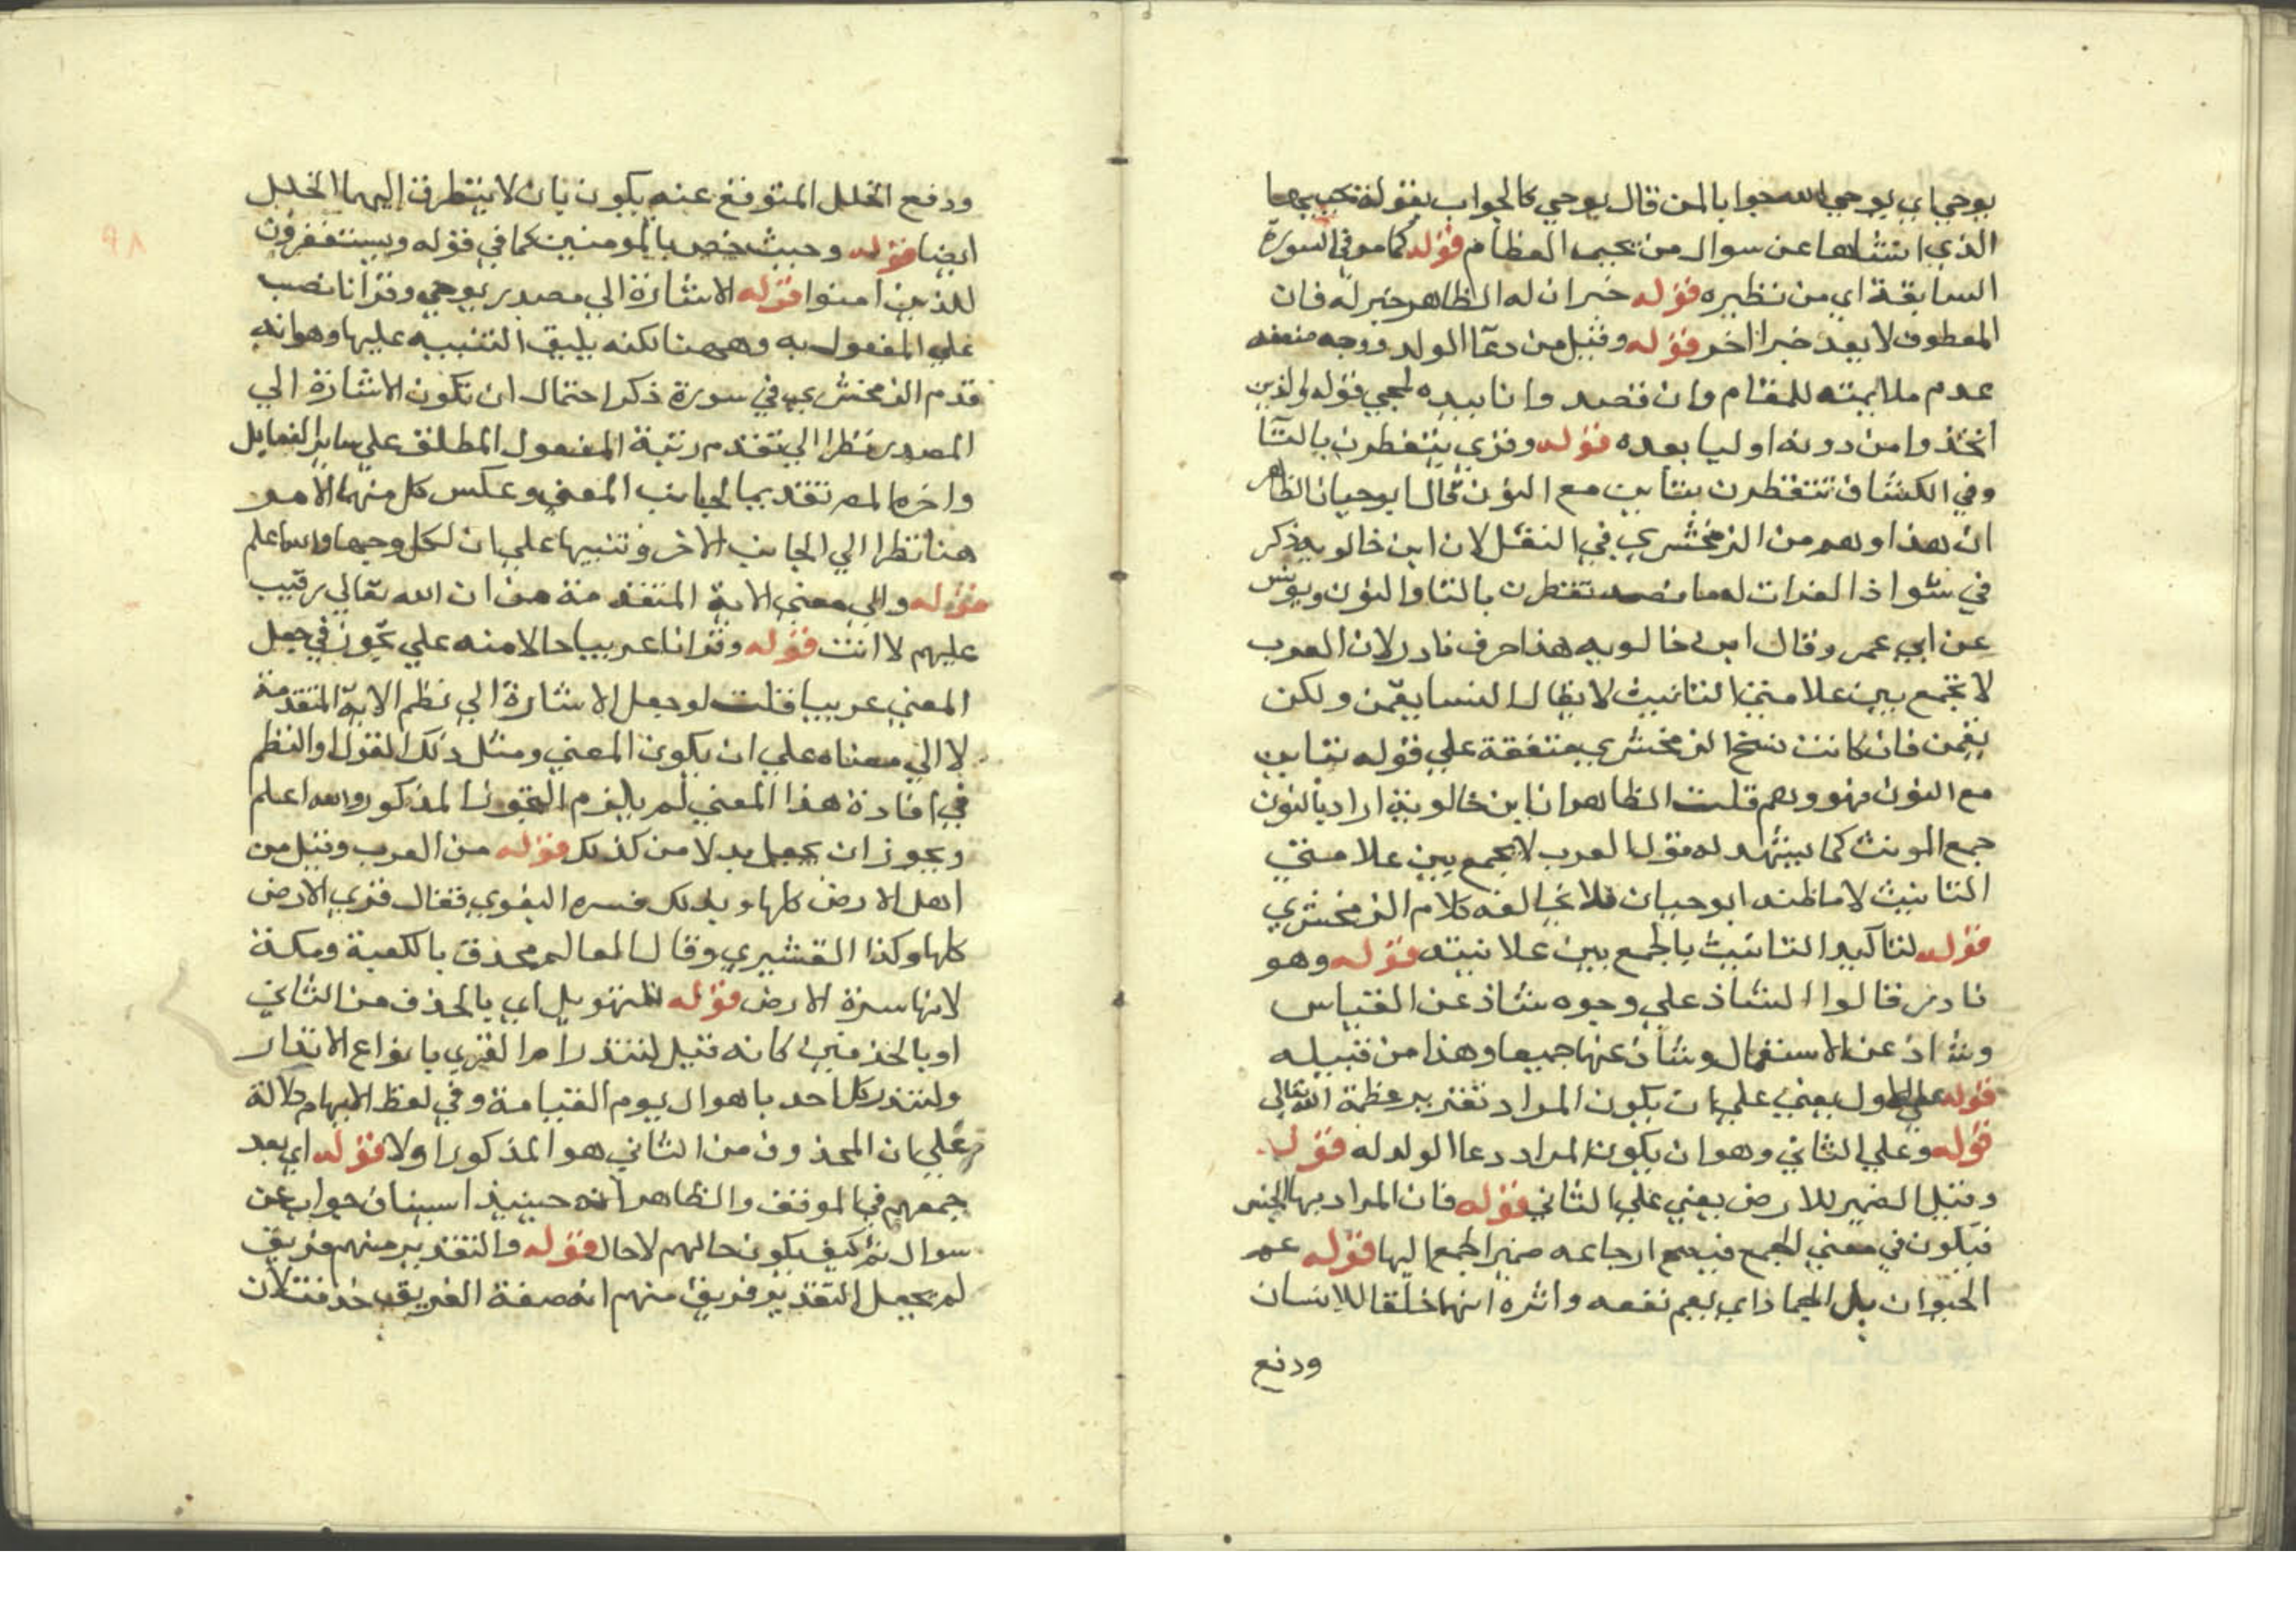 يوحي اي يوحي الله جوابا لمن قال يوحي كالجواب بقوله تحييها
الذي انشاها عن سوال من يحيي العظام قوله كما مر في السورة
السابقة اي من نظيره قوله خبران له الظاهر خبر له فان
المعطوف لا يعد خبرا اخر قوله وقيل من دعا الولد ووجه ضعفه
عدم ملايمته للمقام وان قصد وانا بيده لمجي قوله والذين
اتخذوا من دونه اوليا بعده قوله وقري يتفطرن بالتا
وفي الكشاف تتفطرن بتاين مع النون قال ابو حيان الظاهر
ان هذا وهم من الزمخشري في النقل لان ابن خالويه ذكر
في شواذ القرات له ما نصه تتفطرن بالتا والنون ويونس
عن ابي عمر وقال ابن خالويه هذا حرف نادر لان العرب
لا تجمع بين علامتي التانيث لا يقال النسا يقمن ولكن
يقمن فان كانت نسخ الزمخشري متفقة على قوله بتاين
مع النون فهو وهم قلت الظاهر ان ابن خالويه اراد بالنون
جمع المونث كما يشهد له قول العرب لا يجمع بين علامتي
التانيث لا ما ظنه ابو حيان فلا يخالفه كلام الزمخشري
قوله لتاكيد التانيث بالجمع بين علانيته قوله وهو
نادر قالوا الشاذ علي وجوه شاذ عن القياس
وشاذ عن الاستعمال وشاذ عنها جميعا وهذا من قبيله
قوله علي الاول يعني علي ان يكون المراد تقرير عظمة الله تعالي
قوله وعلي الثاني وهو ان يكون المراد دعا الولد له قوله
وقيل الضمير للارض يعني علي الثاني قوله فان المراد بها الجنس
فيكون في معني الجمع فيصح ارجاعه ضمير الجمع اليها قوله عم
الحيوان بل الجماد اي يعم نفعه واثره انها خلقا للانسان
ودفع
ودفع الخلل المتوقع عنه يكون بان لا يتطرق اليهما الخلل
ايضا قوله وحيث خص بالمومنين كما في قوله ويستغفرون
للذين امنوا قوله الاشارة الي مصدر يوحي وقرانا نصب
علي المفعول به وههنا نكته يليق التنبيه عليها وهو انه
قدم الزمخشري في سورة ذكر احتمال ان تكون الاشارة الي
المصدر نظرا الي تقدم رتبة المفعول المطلق علي ساير
واخره المص تقديما لجانب المعني وعكس كل منهما الامر
هنا نظرا الي الجانب الاخر وتنبيها علي ان لكل وجها والله اعلم
قوله والي معني الاية المتقدمة من ان الله تعالي رقيب
عليهم لا انت قوله وقرانا عربيا حالا منه علي تجوز في جعل
المعني عربيا قلت لو جعل الاشارة الي نظم الاية المتقدمة
لا الي معناه علي ان يكون المعني ومثل ذلك القول او النظم
في افادة هذا المعني لم يلزم التجوز المذكور والله اعلم
ويجوز ان يجعل بدلا من كذلك قوله من العرب وقيل من
اهل الارض كلها وبذلك فسره البغوي فقال قري الارض
كلها وكذا القشيري وقال العالم محدق بالكعبة ومكة
لانها سرة الارض قوله للتهويل اي بالحذف من الثاني
او بالحذفين كانه قيل لتنذر ام القري بانواع الانذار
ولتنذر كل احد باهوال يوم القيامة وفي لفظ الابهام دلالة
علي ان المحذوف من الثاني هو المذكور اولا قوله اي بعد
جمعهم في الموقف والظاهر انه حينيذ استيناف جواب عن
سوال ثم كيف يكون حالهم لا حال قوله والتقدير منهم فريق
لم يجعل التقدير فريق منهم انه صفة الفريق حذفت لان